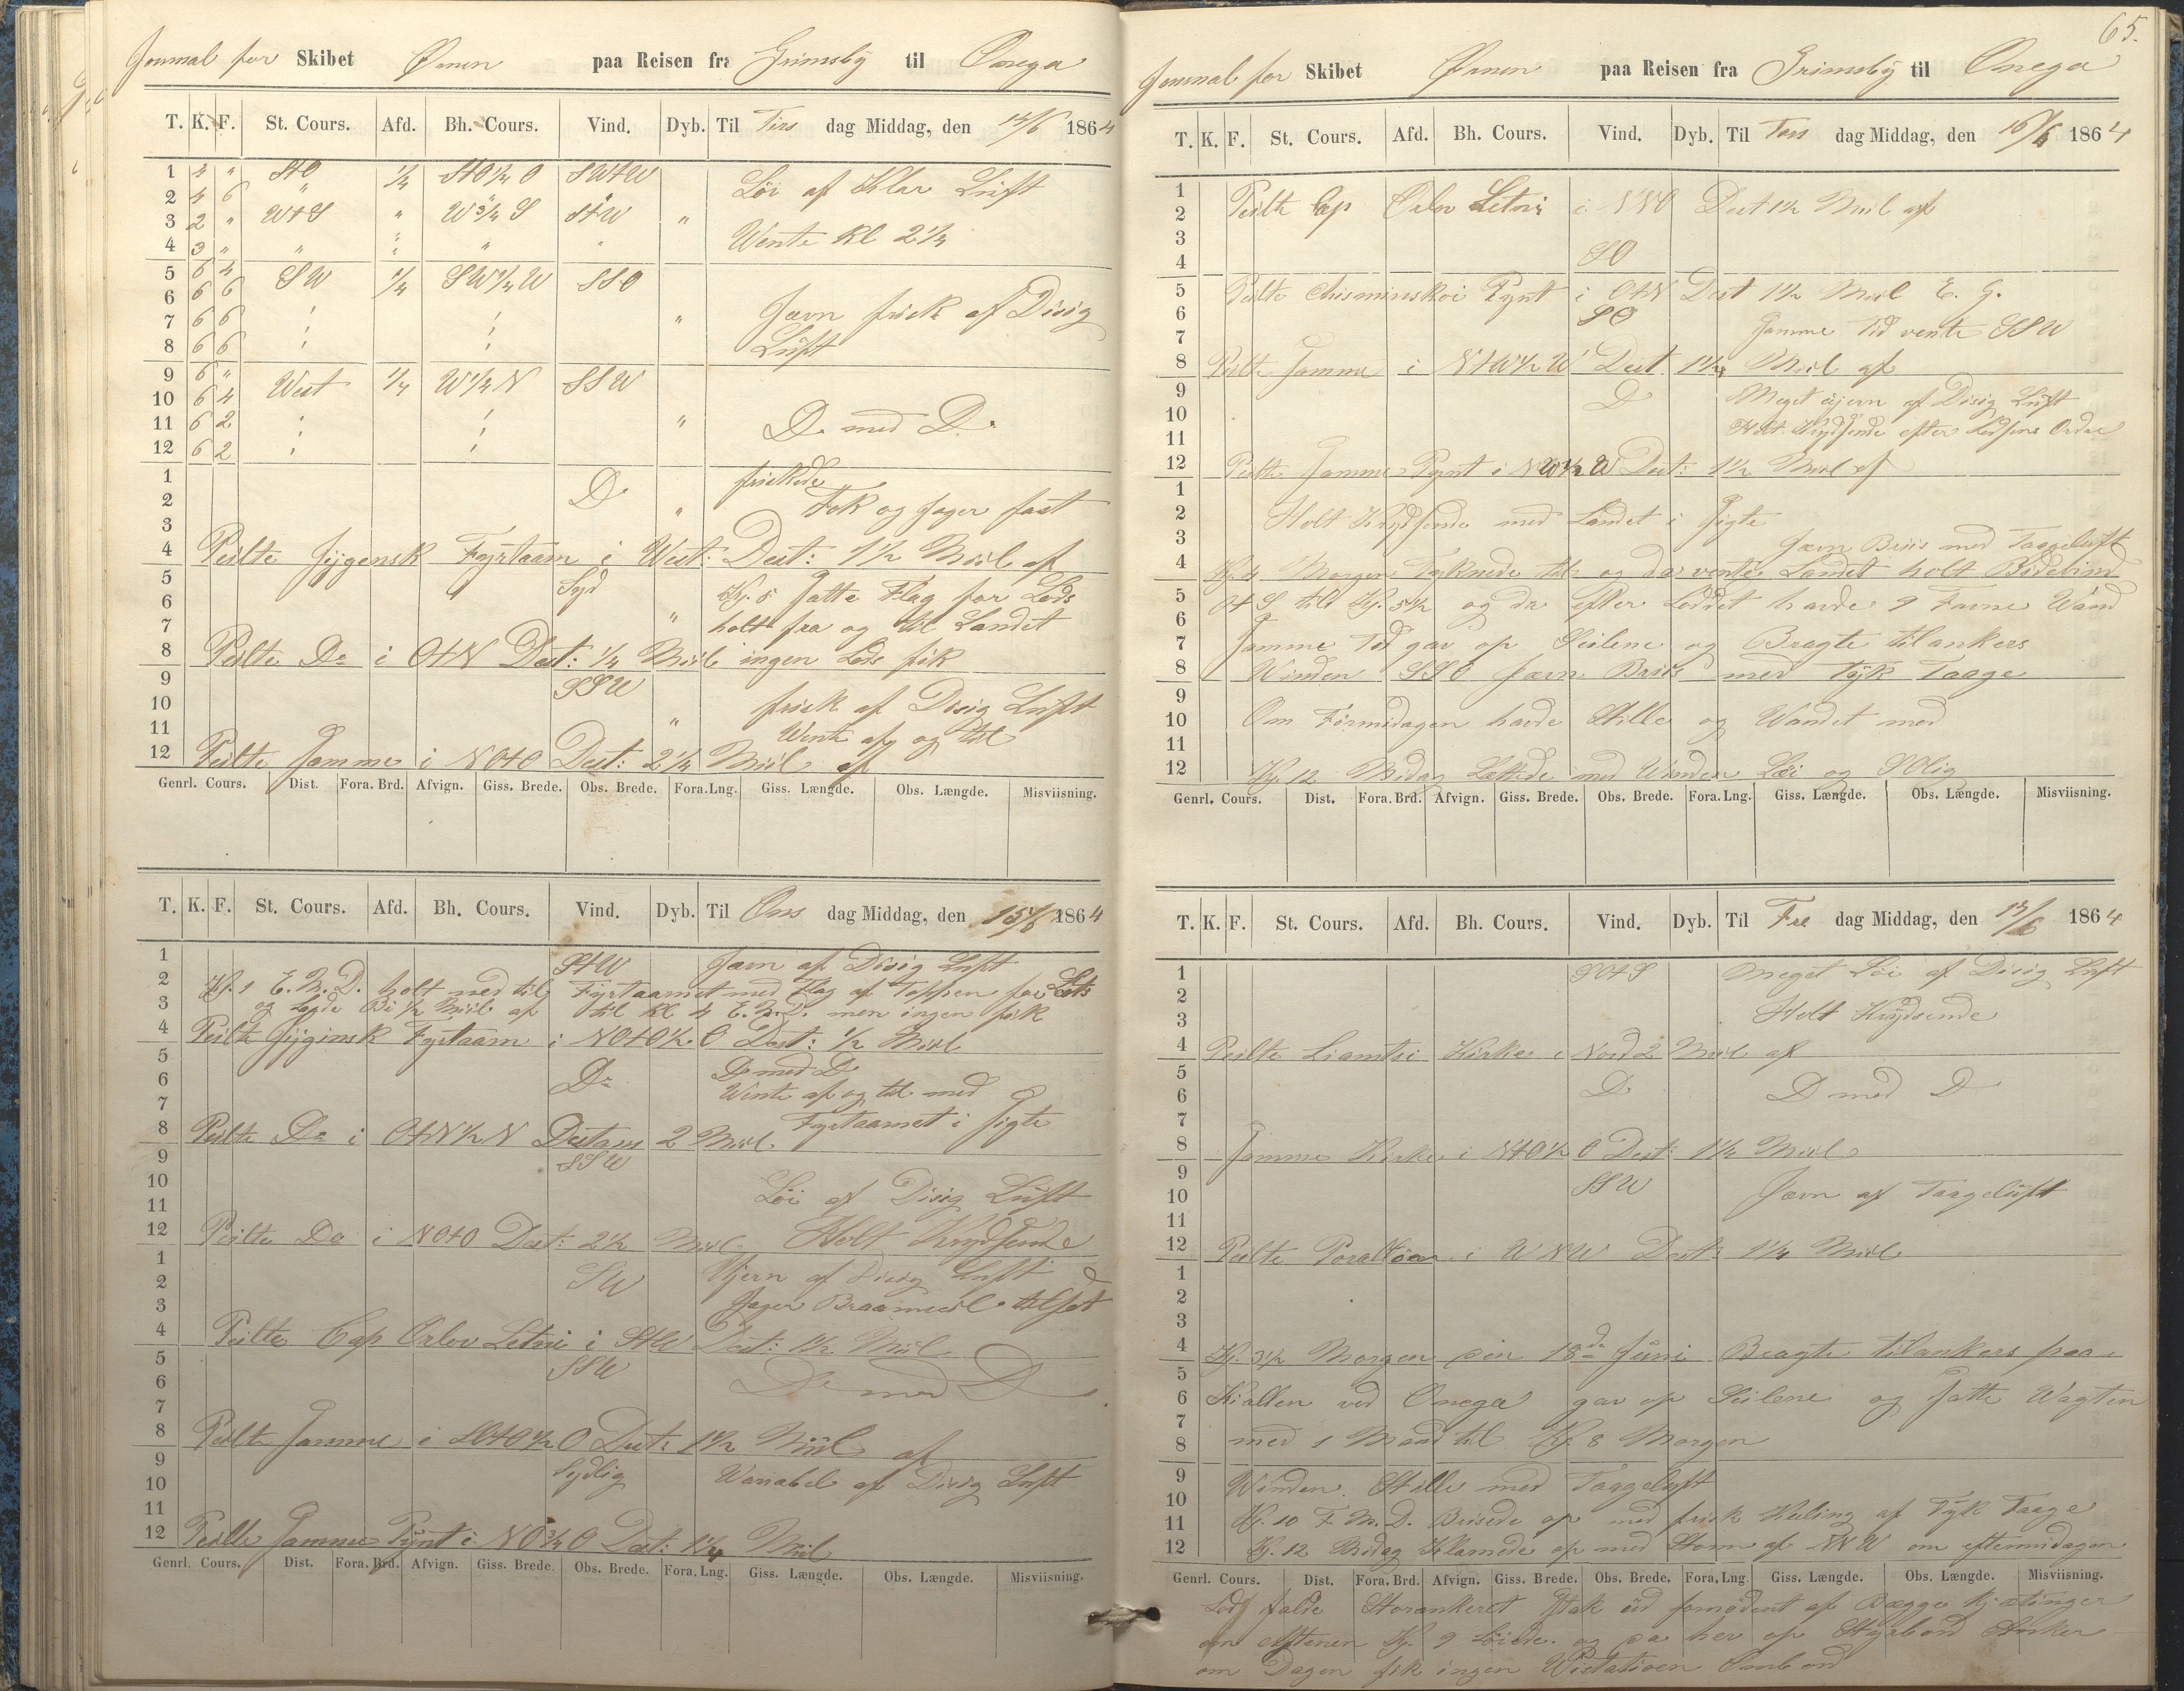 Journal for Skibet Ørnen paa Reisen fra Grimsby til Onega
T. K. F. St. Cours. Afd. Bh. Cours. Vind. Dyb. Til Tirs dag Middag, den 14/6 1864
1 4 " StO 1/4 StO 1/4 O SWtW
Löi af Klar Luft
2 4 6 "
3 2 " WtS " W 3/4 S StW "
Wente Kl 2 1/4
4 3 " " " "
5 6 4 SW 1/4 SW 1/4 W SSO
6 6 6
Jævn frisk af Disig
7 6 6 "
8 6 6
Luft
9 6 " West 1/4 W 1/4 N SSW
10 6 4
11 6 2 "
D. med D.
12 6 2
1
friskede
2 D "
Fok og Jager fast
3
4 Peilte Jygensk Fyrtaarn i West: Dest: 1 1/2 Miil af
5 Syd
Kj. 5 satte Flag for Lods
6
7 "
holt fra og til Landet
8 Peilte Do i OtN Dest: 1/4 Miil ingen Lods fik
9 SSW
10
frisk af Disig Luft
11 "
Wente af og til
12 Peilte Samme i NOtO Dest: 2 1/4 Miil af
Genrl. Cours. Dist. Fora. Brd. Afvign. Giss. Brede. Obs. Brede. Fora. Lng. Giss. Længde. Obs. Længde. Misviisning.
T. K. F. St. Cours. Afd. Bh. Cours. Vind. Dyb. Til Ons dag Middag, den 15/6 1864
1 StW Jævn af Disig Luft
2 Kj. 1 E.M.D. holt ned til Fyrtaarnet med Flag af Toppen for Lots
3 og Lagde Bi 1/2 Miil af til Kl 4 E.M.D. men ingen fik
4 Peilte Jyginsk Fyrtaarn i NOtO 1/2 O Dest: 1/2 Miil
5
D med D
6 Do
Wente af og til med
7
Fyrtaarnet i Sigte
8 Peilte Do i OtN 1/2 N Destans 2 Miil
9 SSW
10
Löi af Disig Luft
11
12 Peilte Do i NOtO Dest: 2 1/2 Miil Holt Krydsende
1
2 SW
af Disig Luft
3
Jager Braamseil tilsat
4 Peilte Cap Orlov Letnie i StW Dest: 1 1/2 Miil
5 SSW
6
D med D
7
8 Peilte Samme i SOtO 1/2 O Dest: 1 1/2 Miil af
9 Sydlig
10
Variabel af Disig Luft
11
12 Peilte Samme Pynt i NO 3/4 O Dest: 1 1/4 Miil
Genrl. Cours. Dist. Fora. Brd. Afvign. Giss. Brede. Obs. Brede. Fora. Lng. Giss. Længde. Obs. Længde. Misviisning.
65.
Journal for Skibet Ørnen paa Reisen fra Grimsby til Onega
T. K. F. St. Cours. Afd. Bh. Cours. Vind. Dyb. Til Tors dag Middag, den 16/6 1864
1
2 Peilte Cap Orlov Letni i NNO Dest 1 1/2 Miil af
3
4 SO
5 Peilte Chisminskoi Pynt i OtN Dest 1 1/2 Miil E. G.
6 SO
7
Samme Tid vente SSW
8 Peilte Samme i NtW 1/2 W Dest. 1 1/4 Miil af
9 D
Meget ujevn af Disig Luft
10
11
Krydsende efter Lodsens Ordre
12 Peilte Samme Pynt i NW 1/2 W Dest: 1 1/2 Miil af
1
2 Holt Krydsende med Landet i Sigte
3
Jævn Briis med Taageluft
4 Kj. 4 Morgen Tyknede til og da vente Landet holt Bidevind
5 OtS til Kj. 5 1/2 og da efter Loddet havde 9 Favne Wand
6
7 Samme Tid gav op Seilene og Bragte tilankers
8 Winden SSO Jævn Briis med tyk Taage
9
10 Om Formidagen havde Stille og Wandet med
11
12 Kj. 12 Midag Lettede med Winden Löi og SOlig
Genrl. Cours. Dist. Fora. Brd. Afvign. Giss. Brede. Obs. Brede. Fora. Lng. Giss. Længde. Obs. Længde. Misviisning.
T. K. F. St. Cours. Afd. Bh. Cours. Vind. Dyb. Til Fre dag Middag, den 17/6 1864
1 SOtS Meget Löi af Disig Luft
2
3
Holt Krydsende
4 Peilte Liamtsi Kirke i Nord 2 Miil af
5
6 D D med D
7
8 Samme Kirke i NtO 1/2 O Dest: 1 1/4 Miil
9 SSW
10
Jævn af Taageluft
11
12 Peilte i WNW Dest: 1 1/4 Miil
1
2
3
4 Kj. 3 1/2 Morgen den 18de Juni Bragte tilankers paa
5
6 Kialten ved Onega gav op Seilene og satte Wagten
7
8 med 1 Mand til Kj. 8 Morgen
9 Winden Stille med Taageluft
10
11 Kj. 10 F.M.D. Brisede op med frisk Kuling af Tyk Taage
12 Kj. 12 Midag Klarnede op med Storm af NNW om eftermidagen
Genrl. Cours. Dist. Fora. Brd. Afvign. Giss. Brede. Obs. Brede. Fora. Lng. Giss. Længde. Obs. Længde. Misviisning.
Lod falde Storankeret Stak ud af Begge Kjætinger
om Aftenen Kj. 9 Löiede og da hev op Styrbord Anker
om Dagen fik ingen Ombord